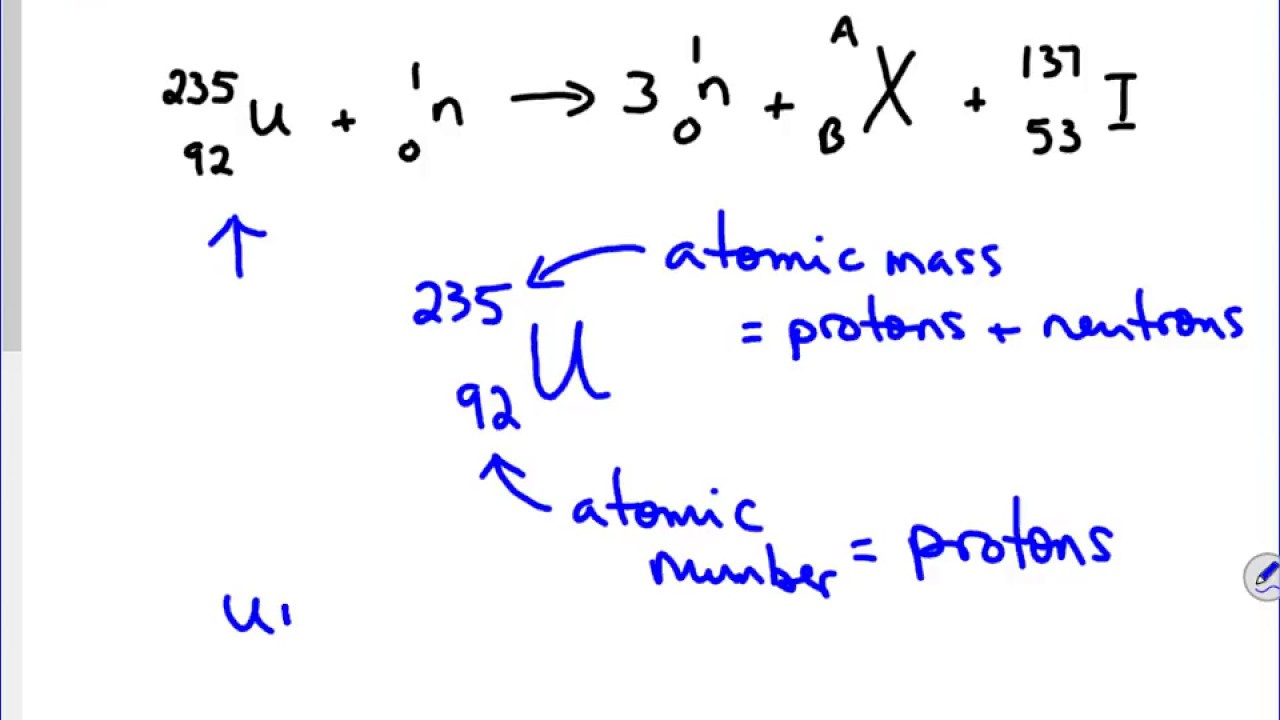 ²³⁵₉₂U + ¹₀n → 3 ¹₀n + ᴬ_B X + ¹³⁷₅₃I
²³⁵₉₂U
atomic mass
= protons + neutrons
atomic
number = protons